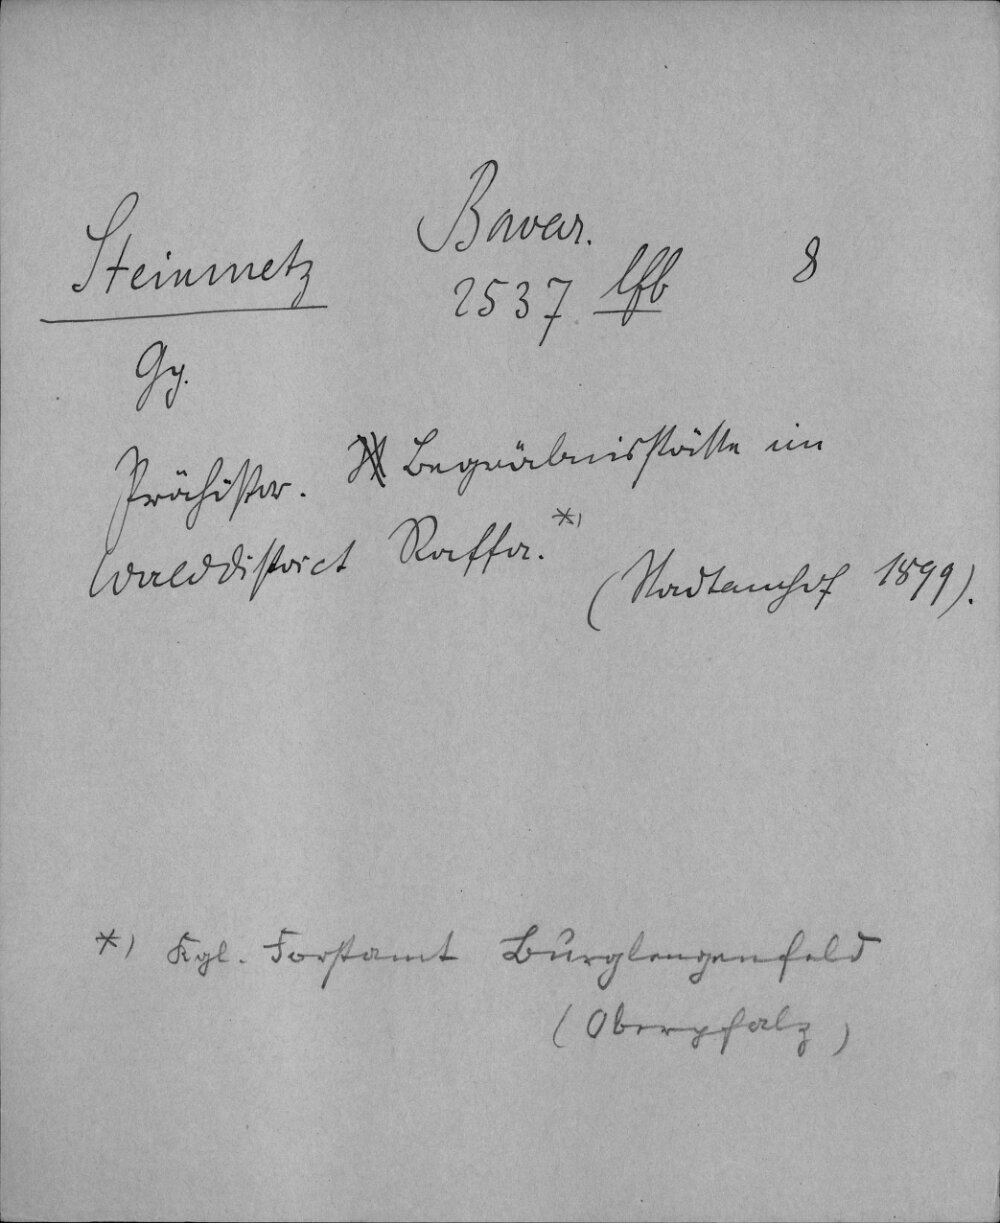 Steinmetz
Bavar.
2537 lfb
8
Gg.
Prähistor. Begräbnisstätte im
Walddistrict Raffa.*)
(Stadtamhof 1899).
*) Kgl. Forstamt Burglengenfeld
(Oberpfalz)